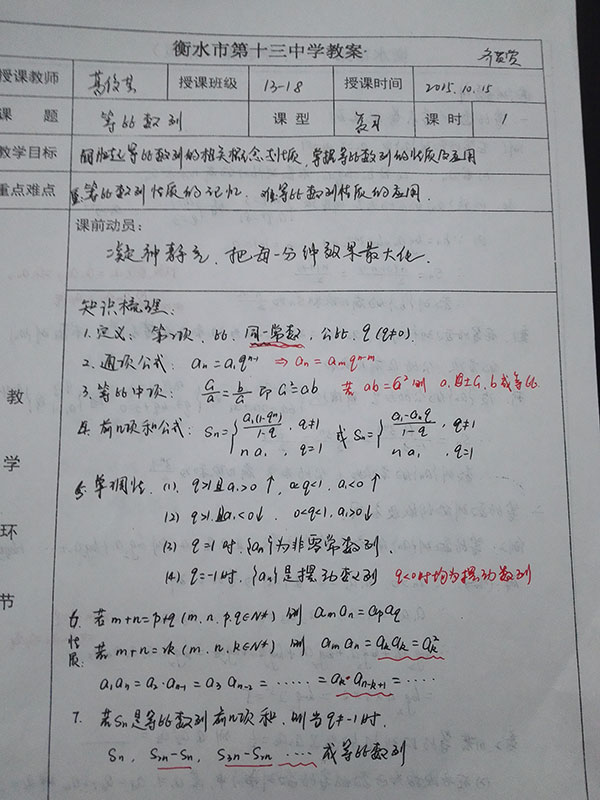 衡水市第十三中学教案
授课教师 授课班级 13-18 授课时间 2015.10.15
课 题 等比数列 课 型 复习 课 时 1
教学目标 等比数列的相关概念及性质，掌握等比数列的性质及应用
重点难点 重:等比数列性质的记忆. 难:等比数列性质的应用.
课前动员:
凝神静气、把每一分钟效果最大化.
教学环节
知识梳理:
1.定义: 第2项、比、同一常数, 公比、q (q≠0).
2.通项公式: aₙ=a₁qⁿ⁻¹ ⇒ aₙ=aₘqⁿ⁻ᵐ
3.等比中项: G/a=b/G 即 G²=ab 若 ab=G² 则 a.±G.b成等比
4.前n项和公式: Sₙ={a₁(1-qⁿ)/1-q , q≠1 na₁ , q=1 或 Sₙ={a₁-aₙq/1-q , q≠1 na₁ , q=1
5.单调性. (1). q>1且a₁>0↑ , 0<q<1, a₁<0↑
(2) q>1.且a₁<0↓. 0<q<1, a₁>0↓
(3) q=1时.{aₙ}为非零常数列.
(4) q=-1时.{aₙ}是摆动数列 q<0时均为摆动数列
6.性质: 若m+n=p+q (m.n.p.q∈N*) 则 aₘaₙ=aₚa_q
若m+n=2k (m.n.k∈N*) 则 aₘaₙ=aₖaₖ=aₖ²
a₁aₙ=a₂·aₙ₋₁=a₃aₙ₋₂=······=aₖ·aₙ₋ₖ₊₁=····
7. 若Sₙ是等比数列前n项和. 则当q≠-1时.
Sₙ, S₂ₙ-Sₙ, S₃ₙ-S₂ₙ ···· 成等比数列